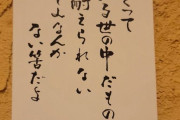 くって
る世の中だもの
耐えられない
そんなんか
ない筈だよ